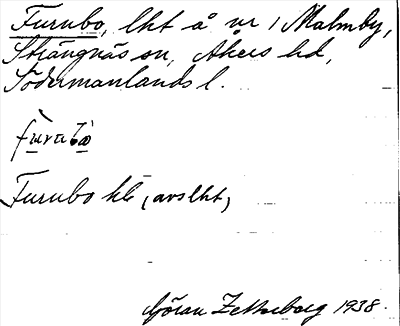 Furubo, lht å nr 1 Malmby,
Strängnäs sn, Åkers hd,
Södermanlands l.
Furubo hb (avslht)
Göran Zetterborg 1938.